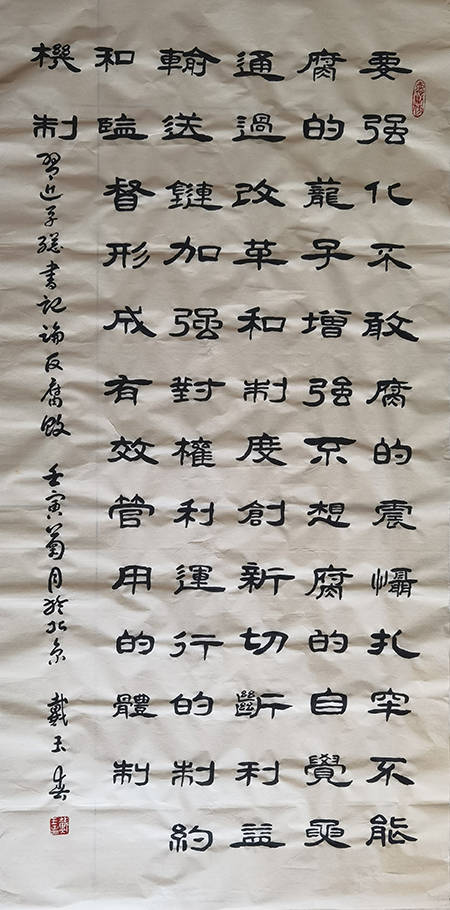 要强化不敢腐的震懾扎牢不能
腐的蘢子增强不想腐的自覺要
通過改革和制度創新切斷利益
輸送鏈加强對權利運行的制約
和監督形成有效管用的體制
機制
習近平總書記論反腐敗 壬寅菊月於北京 戴玉春